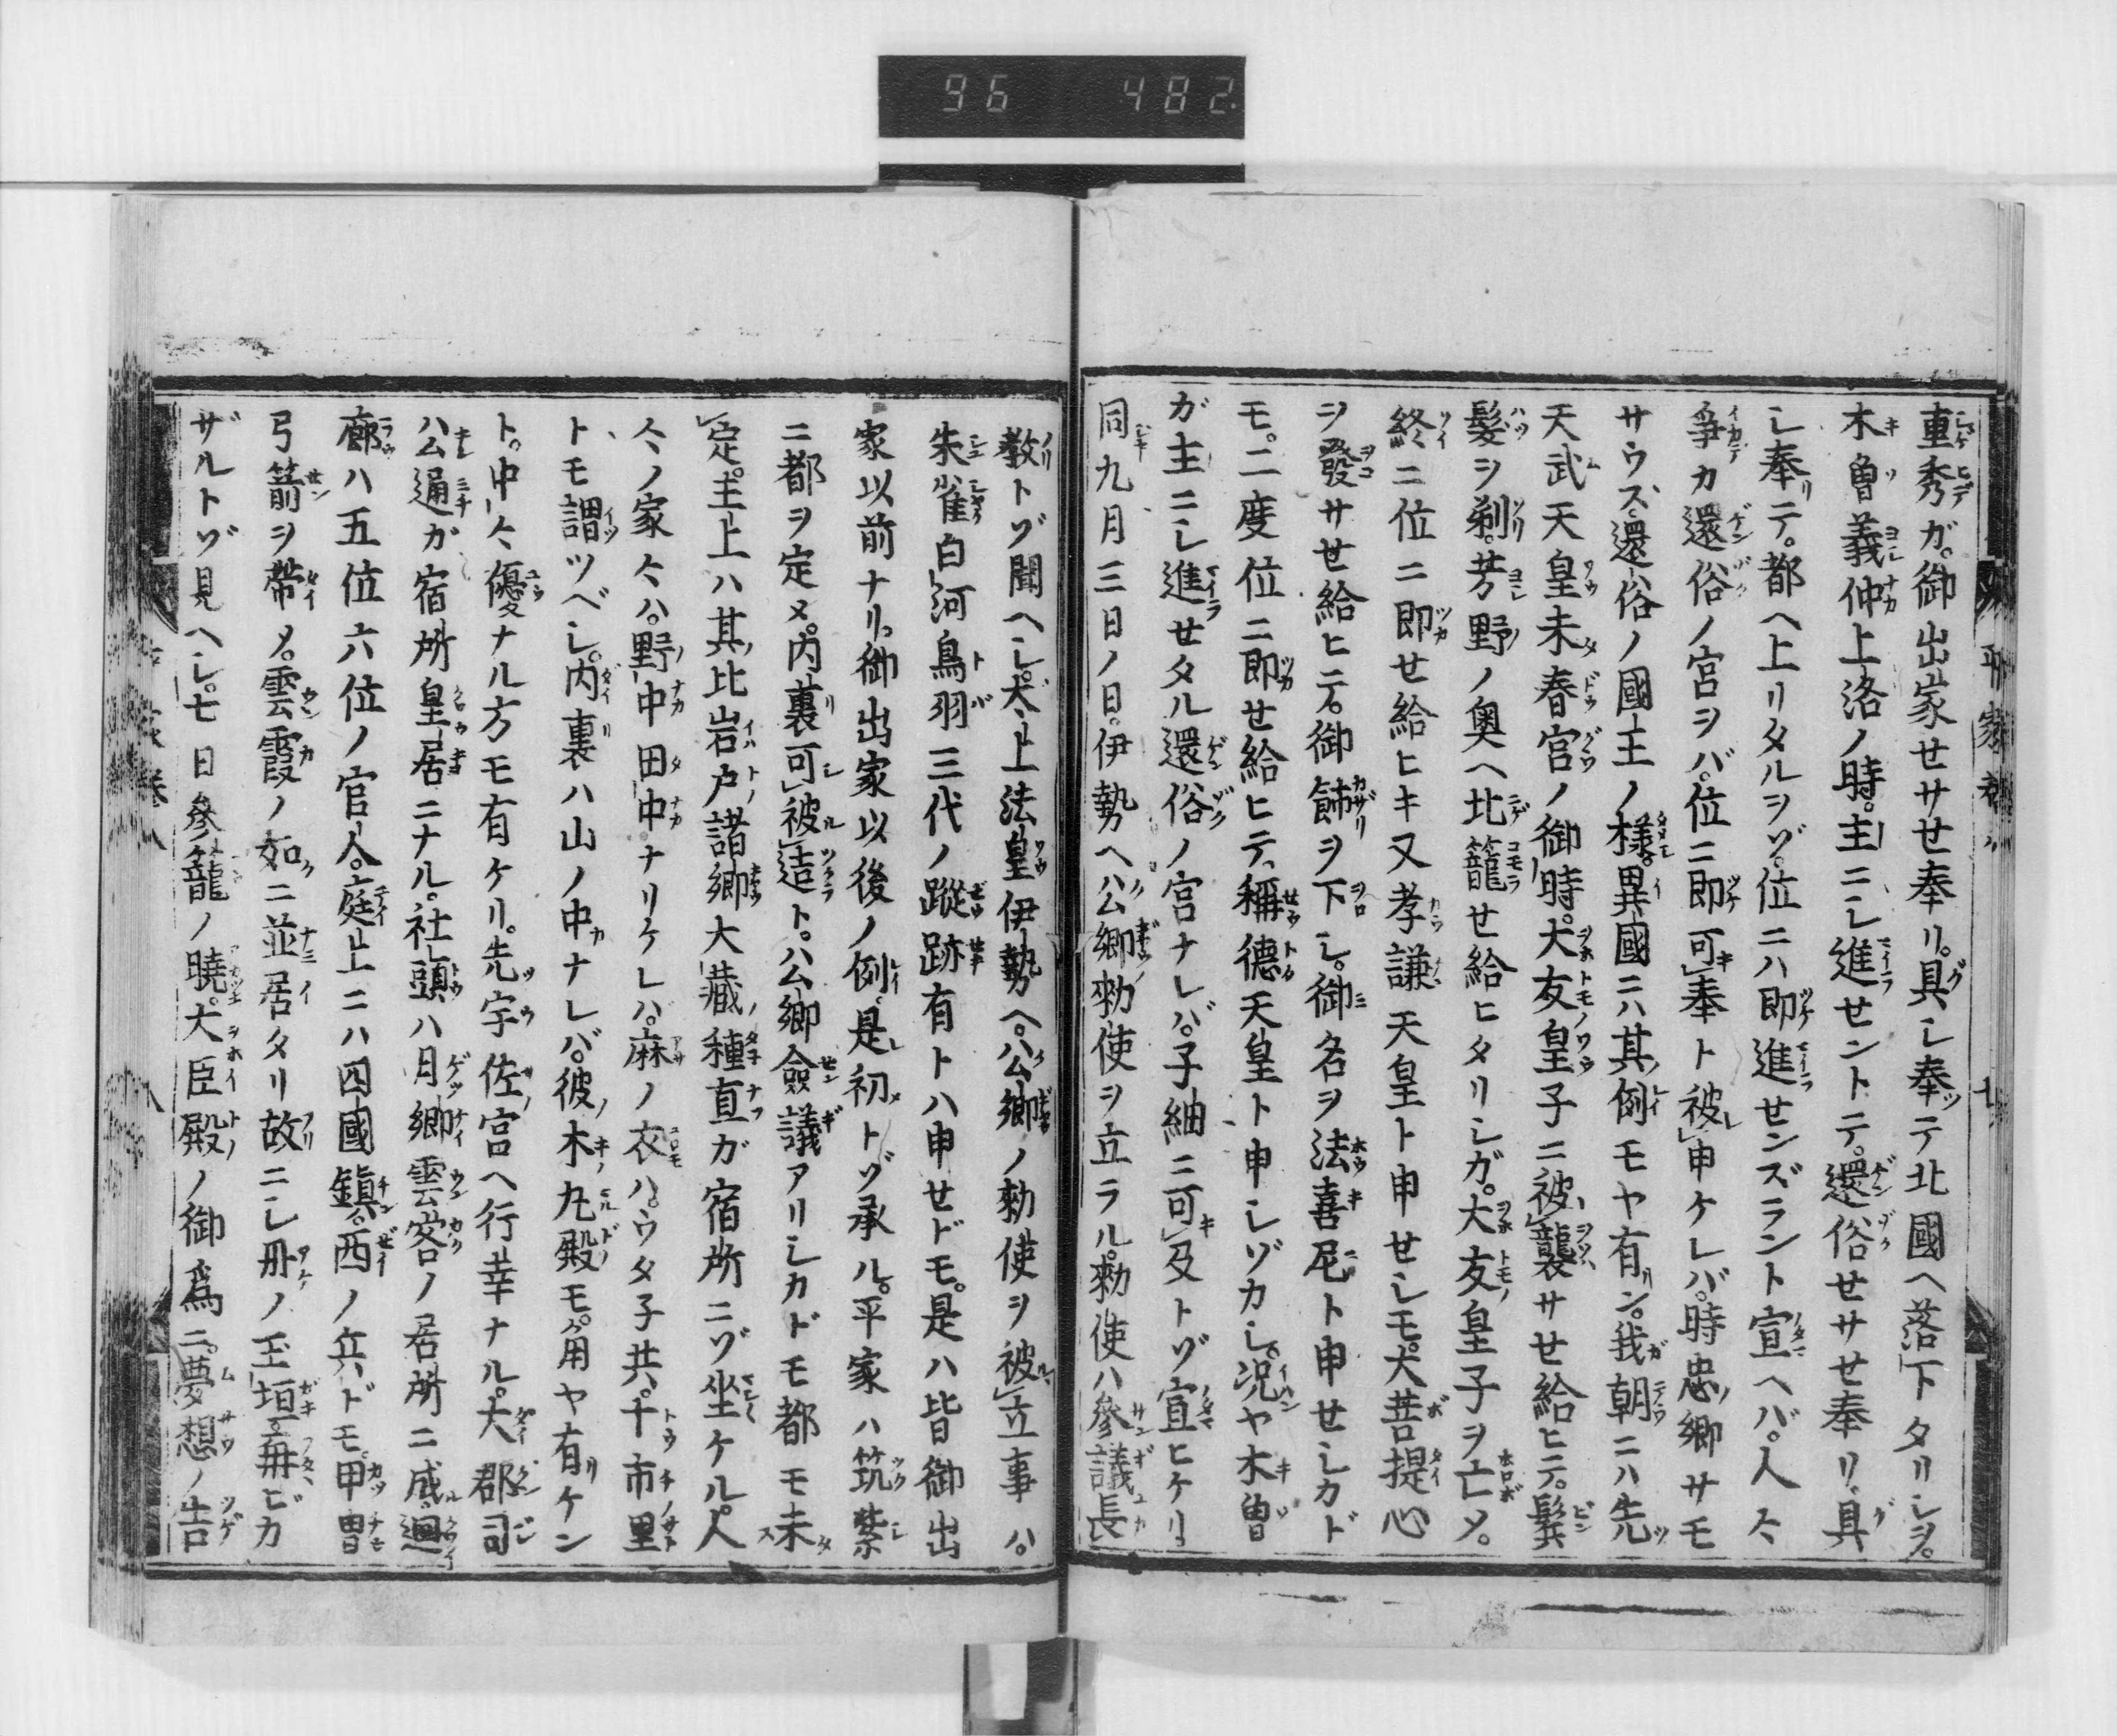 96 482
重秀ガ。御出家せサせ奉リ。具シ奉テ北國ヘ落下タリシヲ。
木曽義仲上洛ノ時。主ニシ進せントテ。還俗せサせ奉リ、具
シ奉リテ。都ヘ上リタルヲゾ。位ニハ即進せンズラント宣ヘバ。人々
争カ還俗ノ宮ヲバ。位ニ即可奉ト被申ケレバ。時忠卿サモ
サウズ、還俗ノ國王ノ様。異國ニハ其例モヤ有ン。我朝ニハ先
天武天皇未春宮ノ御時。大友皇子ニ被襲サせ給ヒテ。鬢
髪ヲ剃。芳野ノ奥ヘ北籠せ給ヒタリシガ。大友皇子ヲ亡メ。
終ニ位ニ即せ給ヒキ又孝謙天皇ト申せシモ。大菩提心
ヲ發サせ給ヒテ。御餝ヲ下シ。御名ヲ法喜尼ト申せシカド
モ。二度位ニ即せ給ヒテ。稱德天皇ト申シゾカシ。況ヤ木曽
ガ主ニシ進せタル還俗ノ宮ナレバ。子細ニ可及トゾ宣ヒケリ
同九月三日ノ日。伊勢ヘ公卿勅使ヲ立ラル。勅使ハ參議長
教トゾ聞ヘシ。太上法皇伊勢ヘ。公卿ノ勅使ヲ被立事ハ。
朱雀白河鳥羽三代ノ蹤跡有トハ申せドモ。是ハ皆御出
家以前ナリ。御出家以後ノ例。是初トゾ承ル。平家ハ筑紫
ニ都ヲ定メ。内裏可被造ト。公卿僉議アリシカドモ都モ未
定。主上ハ其比岩戸諸卿大藏種直ガ宿所ニゾ坐ケル。人
々ノ家々ハ。野中田中ナリケレバ。麻ノ衣ハ。ウタ子共。十市里
トモ謂ツベシ。内裏ハ山ノ中ナレバ。彼木丸殿モ。角ヤ有ケン
ト。中々優ナル方モ有ケリ。先宇佐宮ヘ行幸ナル。大郡司
公通ガ宿所皇居ニナル。社頭ハ月卿雲客ノ居所ニ成。廻
廊ハ五位六位ノ官人。庭上ニハ四國鎮西ノ兵ドモ。甲冑
弓箭ヲ帯メ。雲霞ノ如ニ並居タリ故ニシ丹ノ玉垣再ビカ
ザルトゾ見ヘシ。七日參籠ノ曉。大臣殿ノ御爲ニ。夢想ノ告